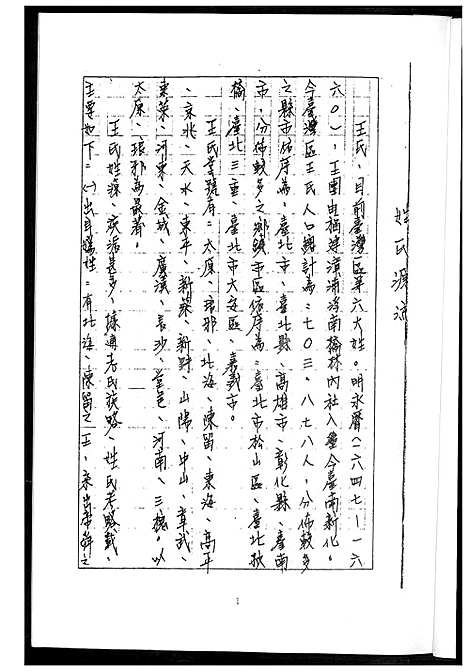 姓氏源流
王氏、目前臺灣區第六大姓。明永曆(一六四七—一六
六0),王圍由福建漳浦浮南橋林內社入墾今臺南新化。
今臺灣區王氏人口總計為:七0三、八七八人,分佈較多
之縣市依序為、臺北市、臺北縣、高雄市、彰化縣、臺南
市、分佈較多之鄉鎮市區依序為:臺北市松山區、臺北板
橋、臺北三重、臺北市大安區、嘉義市。
王氏堂號有:太原、琅邪、北海、陳留、東海、高平
、京兆、天水、東平、新蔡、新野、山陽、中山、章武、
東萊、河東、金城、廣漢、長沙、堂邑、河南、三槐。以
太原、琅邪為最著。
王氏姓源、疾派甚多、據通志氏族略、姓氏考略載、
主要如下:㈠出自媯姓:有北海、陳留之王、系出帝舜之
1